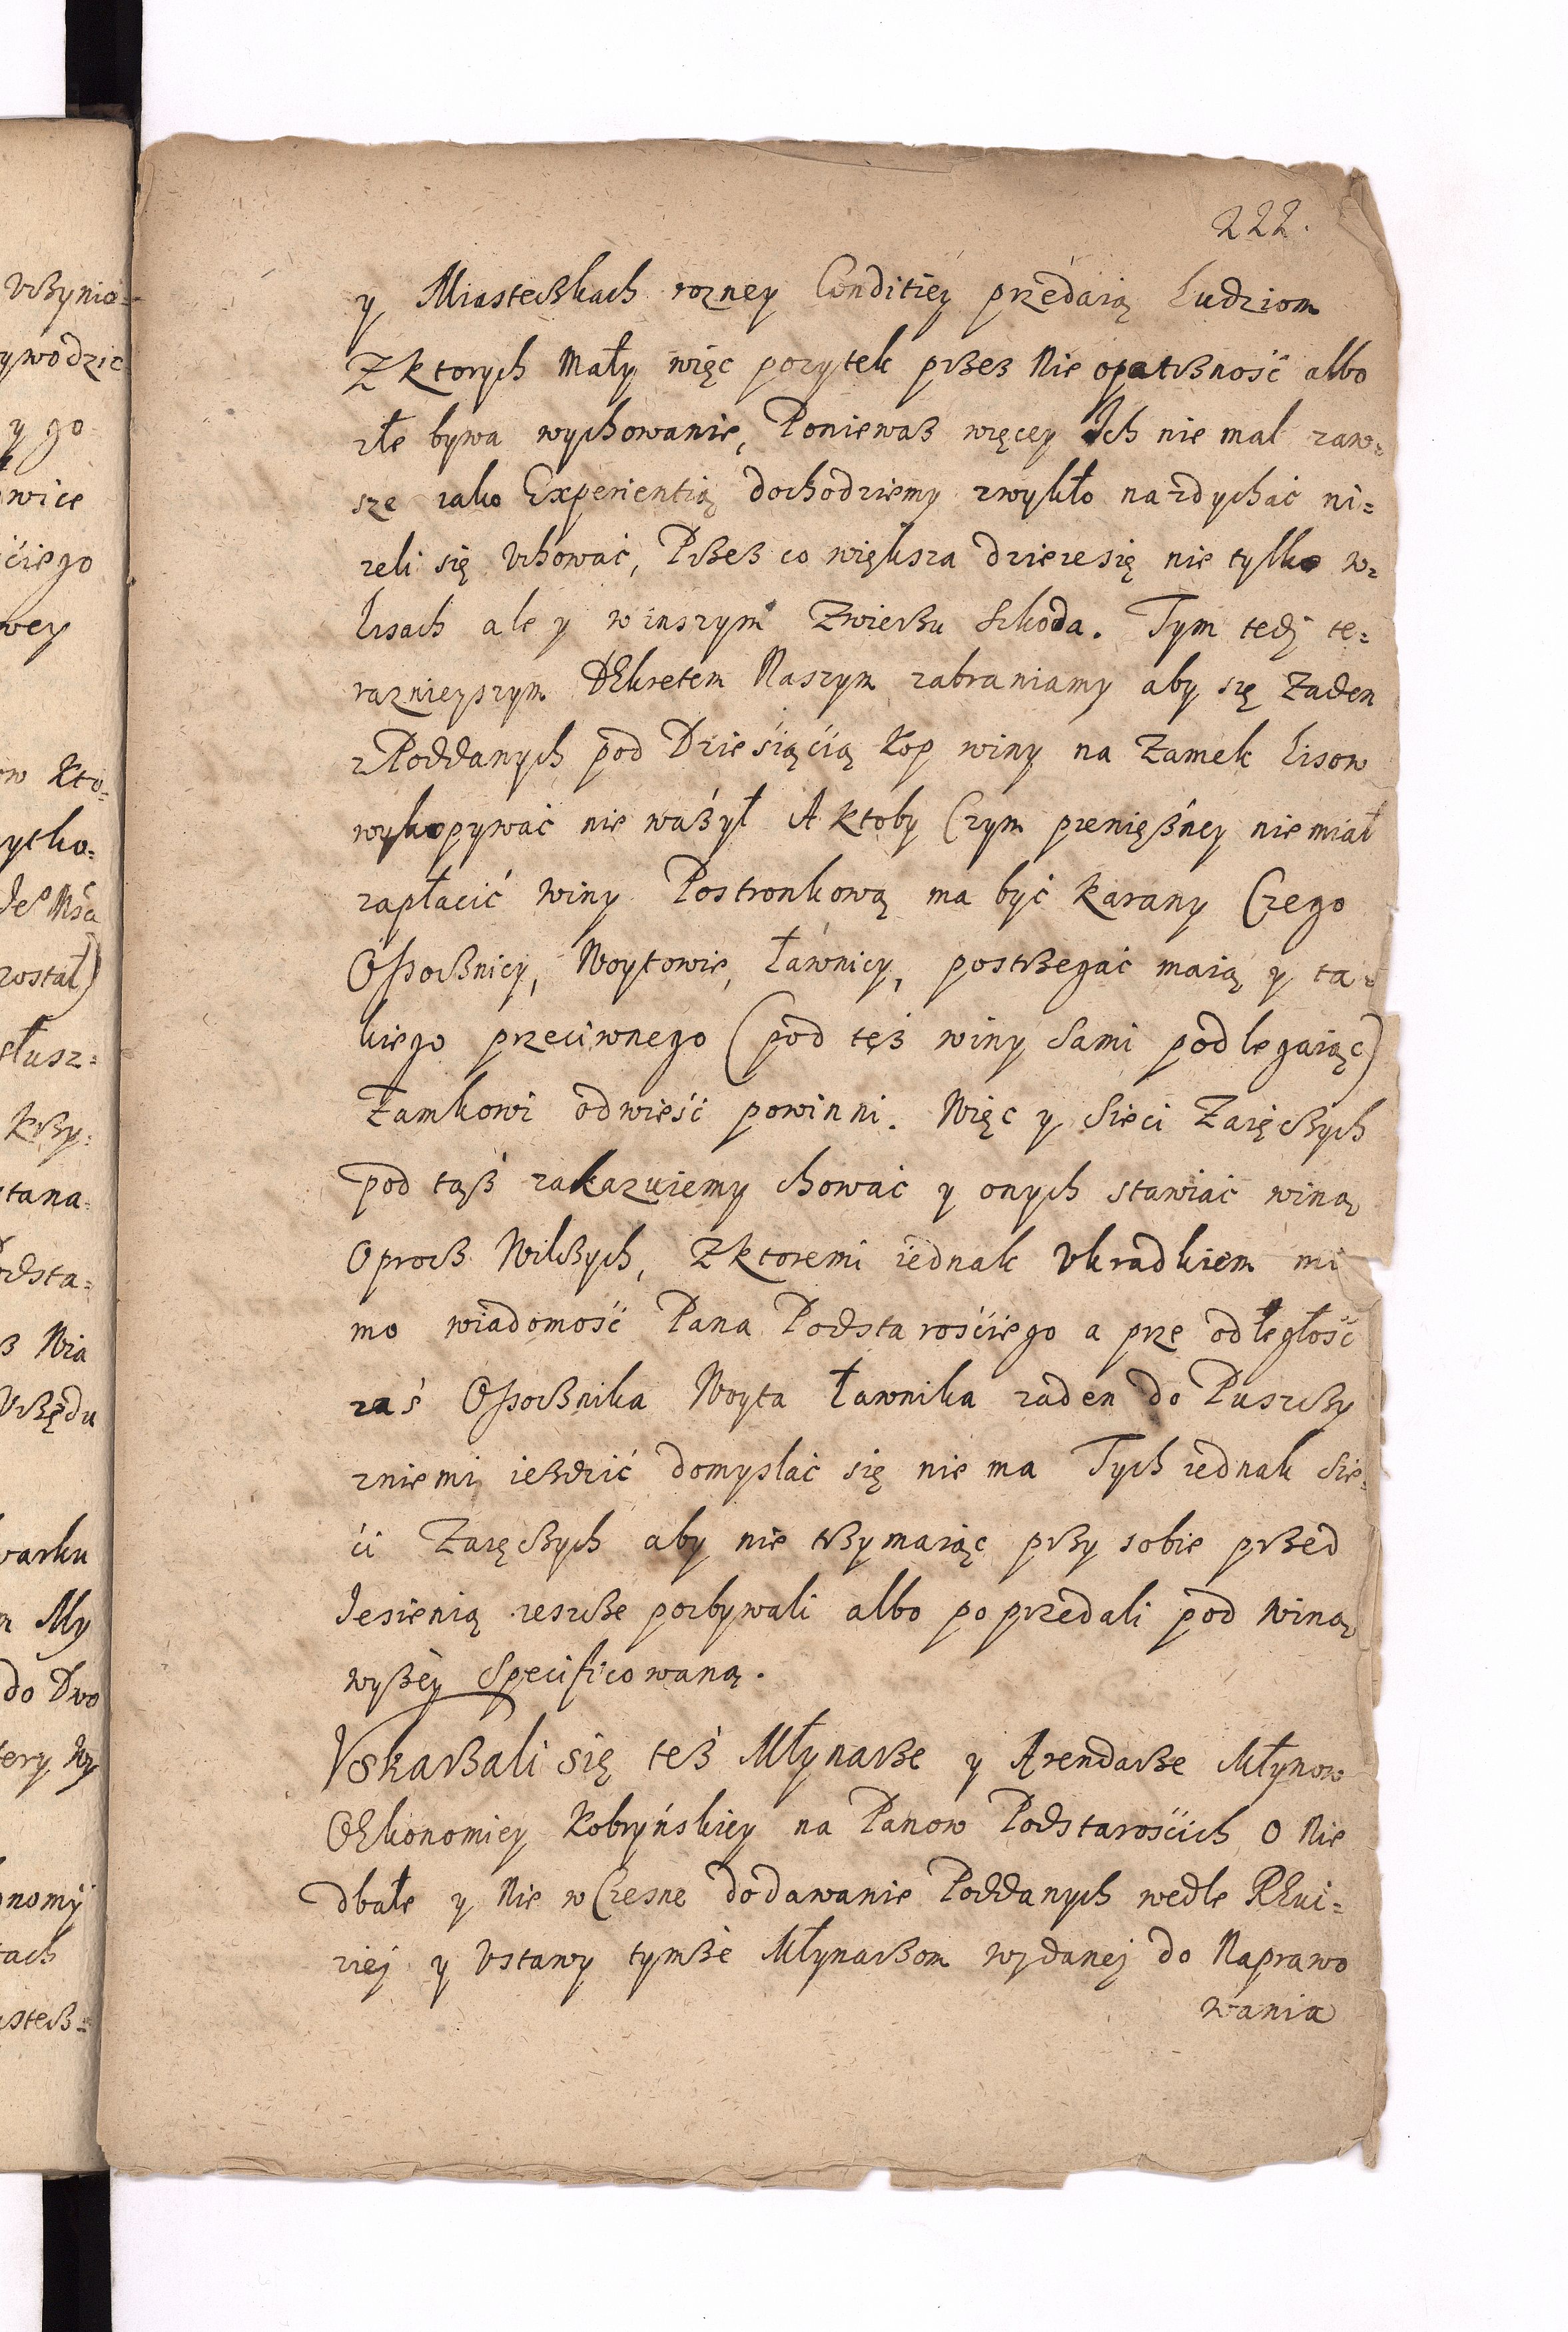 222.
y Miasteczkach rozney Conditiey przedaią Ludziom
Z ktorych Mały więc pozytek przez Nie opatrzność albo
złe bywa wychowanie, Poniewaz więcey Ich nie mal zaw=
sze iako Experientią dochodziemy zwykło nazdychać ni=
zeli się Vhować, Przez co większa dzieie się nie tylko w=
Lisach ale y w inszym Zwierzu Szkoda. Tym tedj te=
raznieyszym DEkretem Naszym zabraniamy aby się Zaden
z Poddanych pod Dziesiąćią Kop winy na Zamek Lisow
wykopywać nie ważył A ktoby Czym pienięzney nie miał
zapłacić winy Postronkową ma być Karany Czego
Ossocznicy, Woytowie, Ławnicy, postrzegać maią y ta=
kiego przeciwnego (pod tęż winy Sami podlegaiąc)
Zamkowi odwieść powinni. Więc y Sieci Zaięczych
pod tąż zakazuiemy chować y onych stawiać winą
Oprocz Wilczych, Z ktoremi iednak Vkradkiem mi
mo wiadomość Pana Podstarośćiego a prze odległość
zaś Ossocznika Woyta Ławnika zaden do Puszczy
zniemi iezdzić domyslać się nie ma Tych iednak Sie=
ći Zaięczych aby nie trzymaiąc przy sobie przed
Jesienią ieszcze pozbywali albo poprzedali pod winą
wyżey Specificowaną.
Vskarzali się też Młynarze y Arendarze Młynow
OEkonomiey Kobryńskiey na Panow Podstarośćich O Nie
dbałe y Nie wCzesne dodawanie Poddanych wedle REui=
ziej y Vstawy tymże Młynarzom wydanej do Naprawo
wania